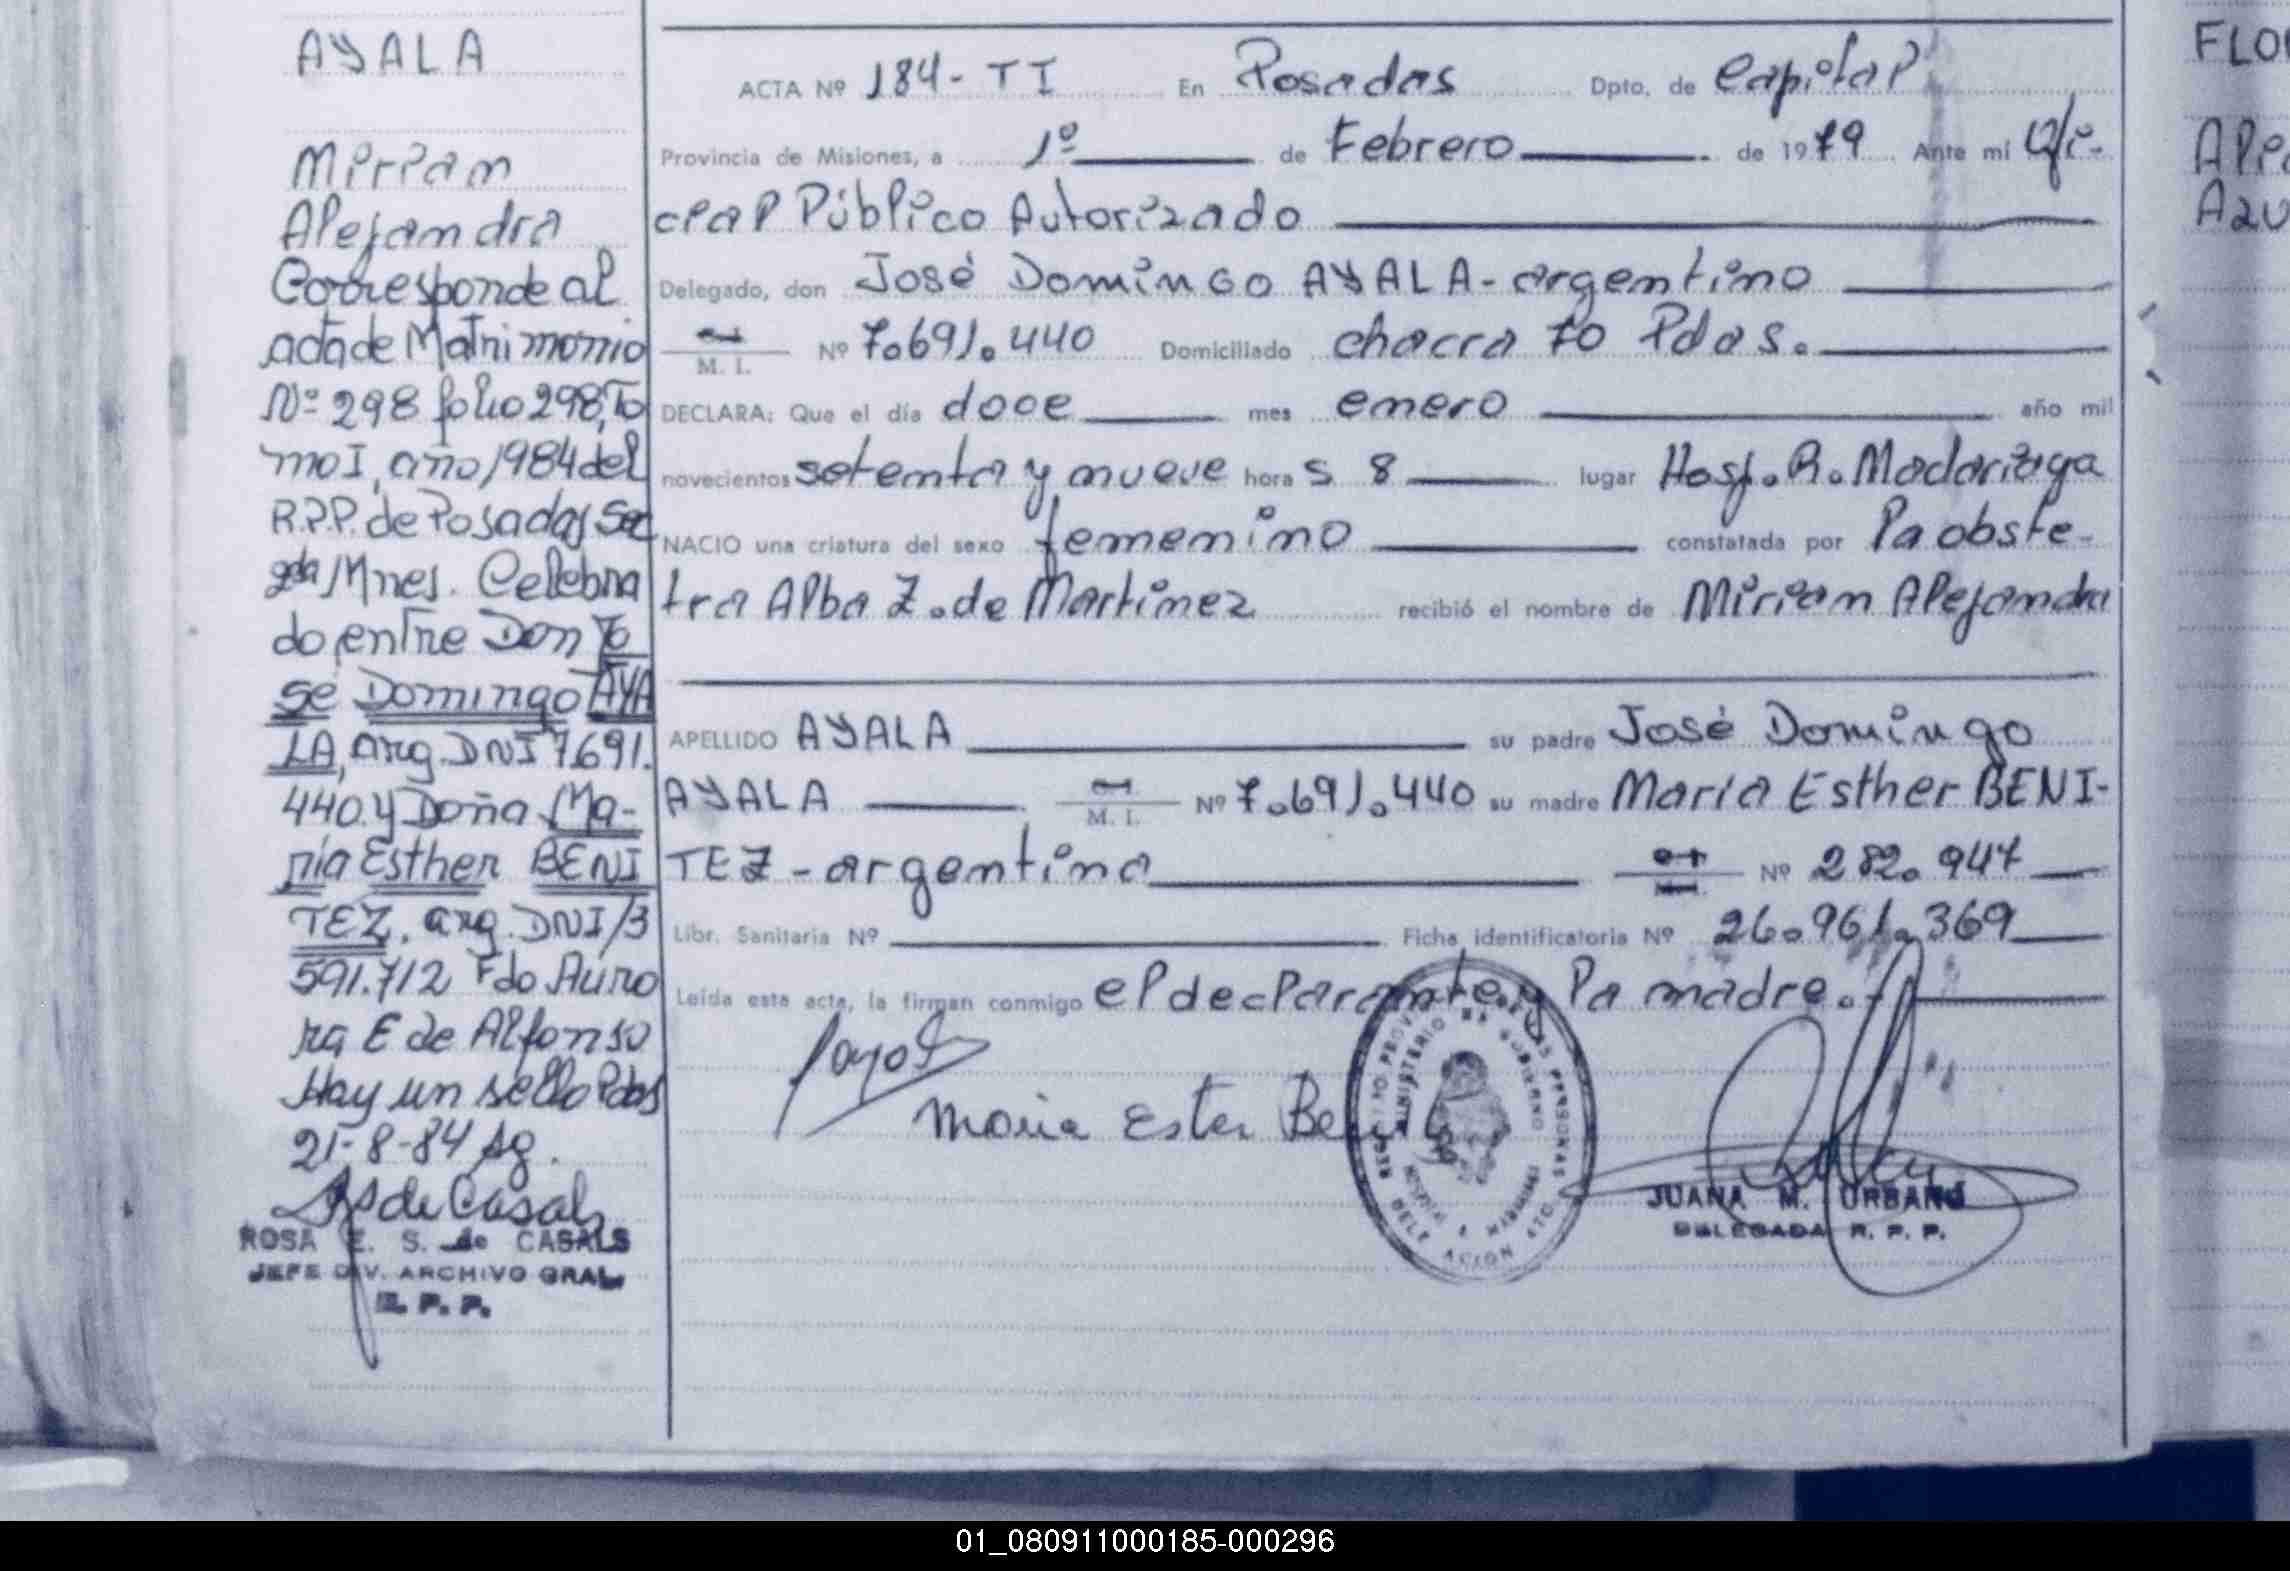 AYALA
Miriam
Alejandra
Corresponde al
acta de Matrimonio
Nº 298 folio 298, To
mo I, año 1984 del
R.P.P. de Posadas Sec
gda/Mnes. Celebra
do entre Don Jo
se Domingo AYA
LA, arg. DNI 7691.
440 y Doña Ma-
ría Esther BENI
TEZ, arg. DNI 13
591.712 Fdo Auro
ra E de Alfonso
Hay un sello Pdas
21-8-84 Ag.
de Casals
ROSA E. S. de CASALS
JEFE DIV. ARCHIVO GRAL.
R. P. P.
ACTA Nº 184- TI En Posadas Dpto. de Capital
Provincia de Misiones, a 1º de Febrero de 1979 Ante mi Ofi-
cial Público Autorizado
Delegado, don José Domingo AYALA- argentino
M. I. Nº 7.691.440 Domiciliado chacra 70 Pdas.
DECLARA: Que el día doce mes enero año mil
novecientos setenta y nueve hora s 8 lugar Hosp. R. Madariaga
NACIO una criatura del sexo femenino constatada por la obste-
tra Alba Z. de Martinez recibió el nombre de Miriam Alejandra
APELLIDO AYALA su padre José Domingo
AYALA M. I. Nº 7.691.440 su madre María Esther BENI-
TEZ - argentina Nº 282.947
Libr. Sanitaria Nº Ficha identificatoria Nº 26.961.369
Leída esta acta, la firman conmigo el declarante y la madre.-
Maria Ester Be
REGISTRO PROVINCIAL DE LAS PERSONAS
MINISTERIO DE GOBIERNO
HOSPITAL R. MADARIAGA
DELEGACION
JUANA M. URBANO
DELEGADA R. P. P.
FLO
Ale
Azu
01_080911000185-000296